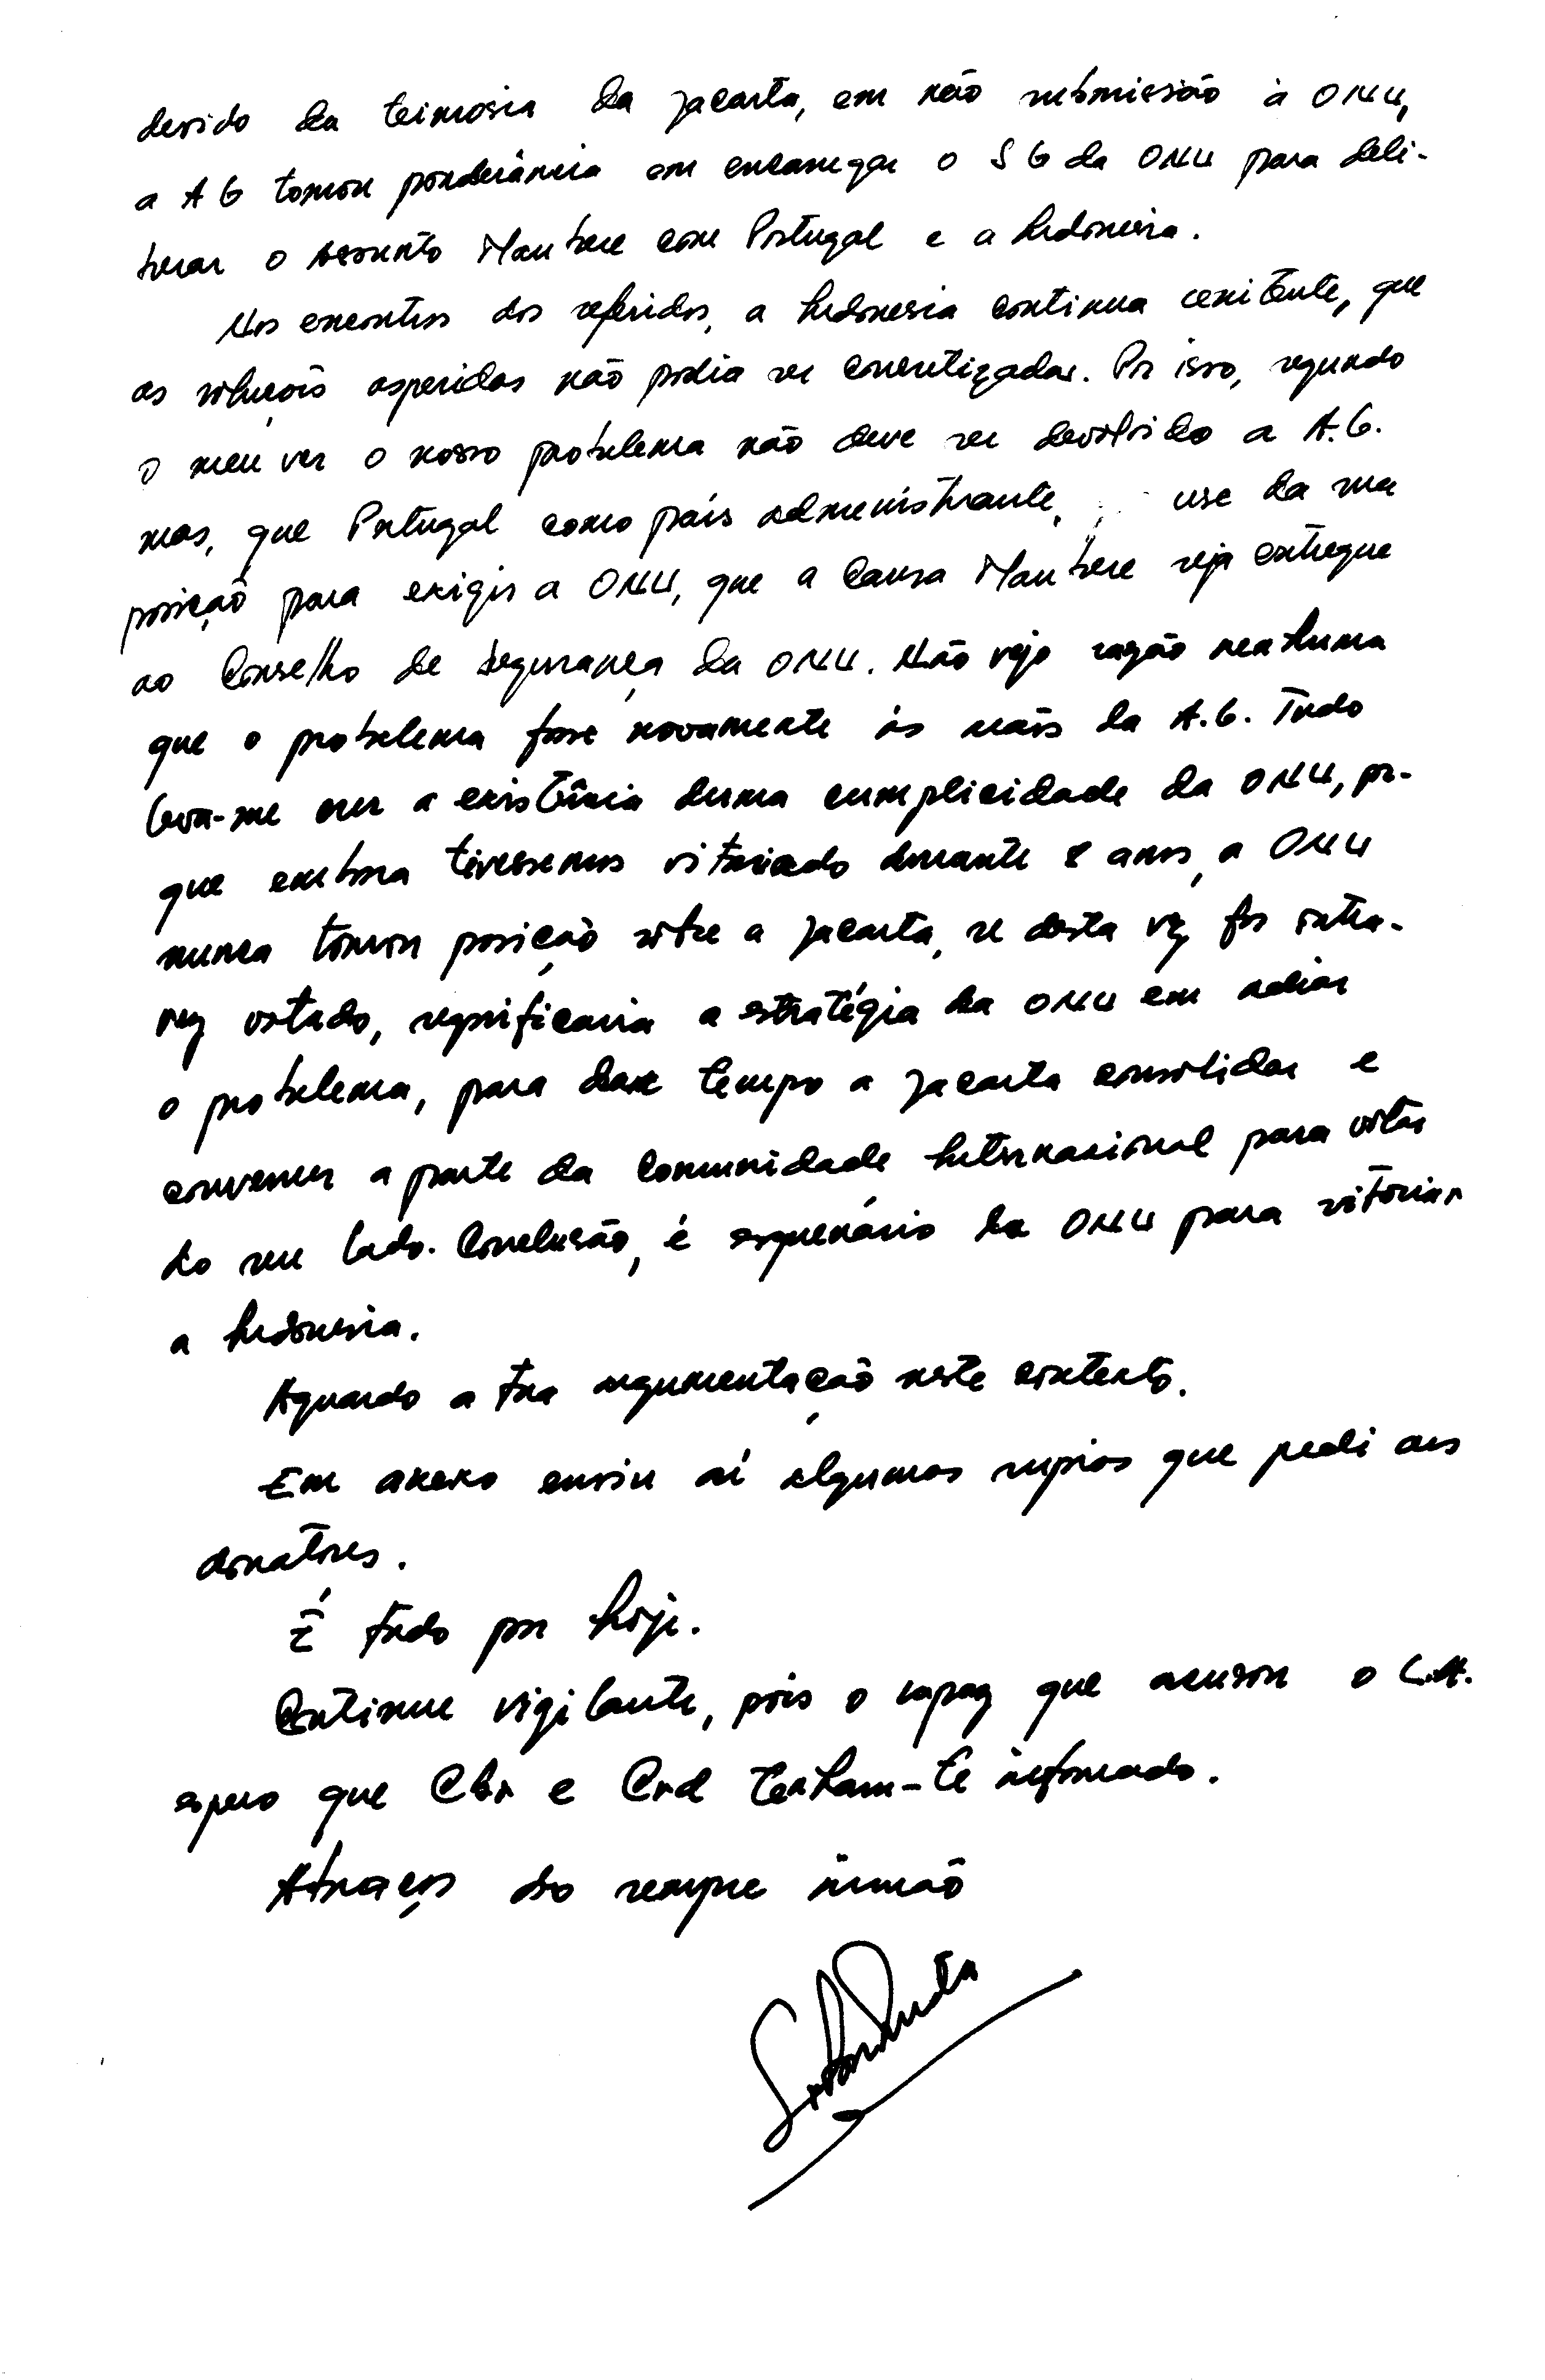 devido da teimosia da Jacarta, em não submissão à ONU,
a AG tomou ponderância em encarregar o SG da ONU para deli-
berar o assunto Maubere com Portugal e a Indonesia.
Nos encontros dos referidos, a Indonesia continua renitente, que
as soluçois asperidas não podia ser concretizadas. Por isso, segundo
o meu ver o nosso problema não deve ser devolvido a A.G.
mas, que Portugal como país administrante, use da sua
posição para exigir a ONU, que a Causa Maubere seja entregue
ao Conselho de Segurança da ONU. Não vejo razão nenhuma
que o problema fosse novamente às mãis da A.G. Tudo
leva-me crer a existência duma cumplicidade da ONU, por-
que embora tivessemos vitoriado durante 8 anos, a ONU
nunca tomou posição sobre a Jacarta, se desta vez for outra-
vez votado, significaria a estratégia da ONU em adiar
o problema, para dar tempo a Jacarta consolidar e
convencer a parte da Comunidade Internacional para votar
do seu lado. Conclusão, é esquenário da ONU para vitoriar
a Indonesia.
Aguardo a tua argumentação neste contexto.
Em anexo enviu aí algumas rupias que pedi aos
donatores.
É tudo por hoje.
Continue vigilante, pois o rapaz que acusou o L.A.
espero que Cbr e Crd tenham-te informado.
Abraços do sempre irmão